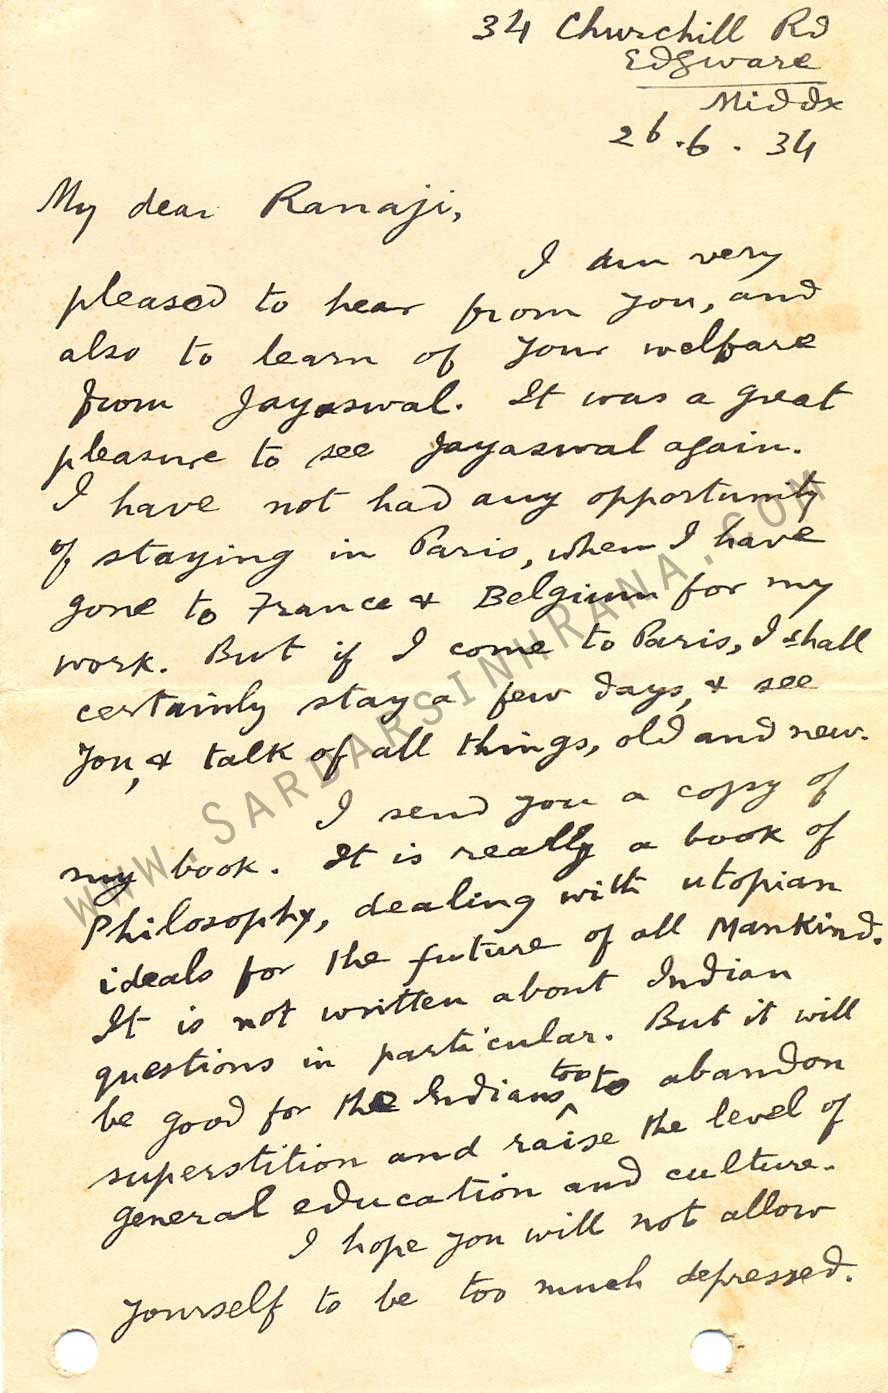 34 Churchill Rd
Edgware
Middx
26.6.34
My dear Ranaji,
I am very
pleased to hear from you, and
also to learn of your welfare
from Jayaswal. It was a great
pleasure to see Jayaswal again.
I have not had any opportunity
of staying in Paris, when I have
gone to France & Belgium for my
work. But if I come to Paris, I shall
certainly stay a few days, & see
you, & talk of all things, old and new.
I send you a copy of
my book. It is really a book of
Philosophy, dealing with utopian
ideals for the future of all Mankind.
It is not written about Indian
questions in particular. But it will
be good for the Indians too to abandon
superstition and raise the level of
general education and culture.
I hope you will not allow
yourself to be too much depressed.
WWW.SARDARSINHRANA.COM